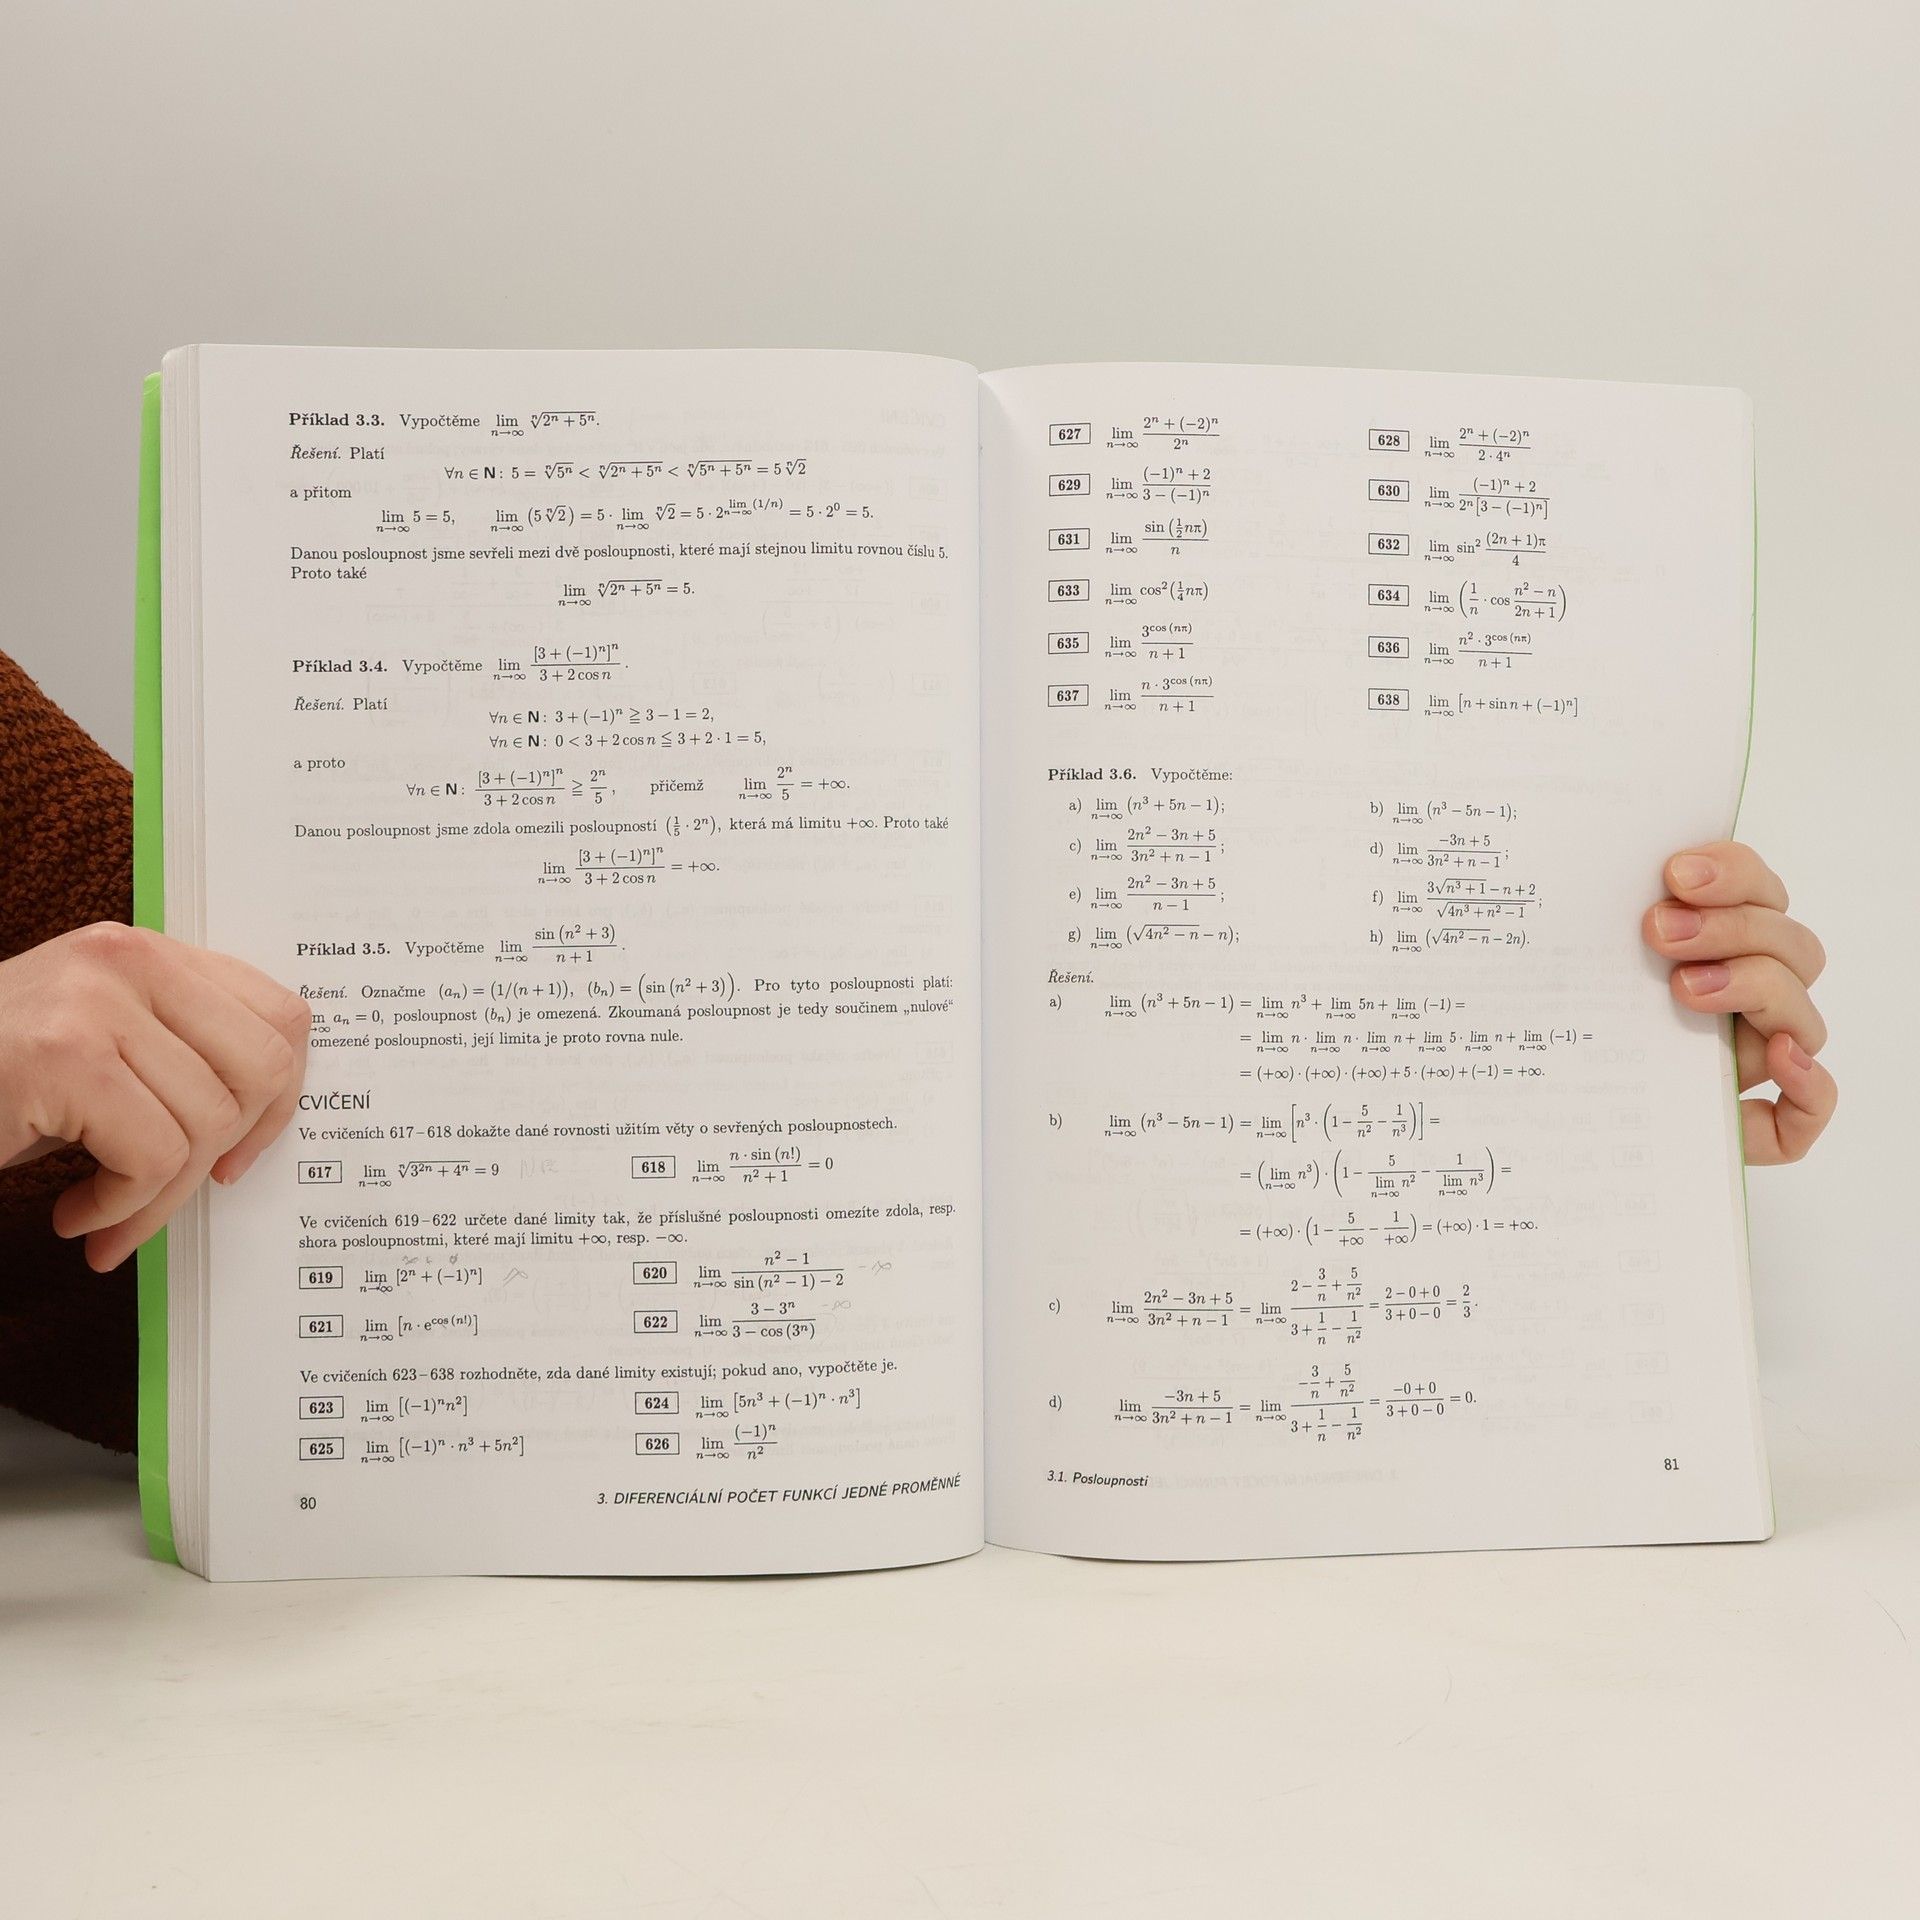 Příklad 3.3. Vypočtěme lim_{n→∞} ⁿ√(2ⁿ + 5ⁿ).
Řešení. Platí
∀n ∈ N: 5 = ⁿ√(5ⁿ) < ⁿ√(2ⁿ + 5ⁿ) < ⁿ√(5ⁿ + 5ⁿ) = 5 ⁿ√2
a přitom
lim_{n→∞} 5 = 5, lim_{n→∞} (5 ⁿ√2) = 5 · lim_{n→∞} ⁿ√2 = 5 · 2^{lim_{n→∞} (1/n)} = 5 · 2⁰ = 5.
Danou posloupnost jsme sevřeli mezi dvě posloupnosti, které mají stejnou limitu rovnou číslu 5.
Proto také
lim_{n→∞} ⁿ√(2ⁿ + 5ⁿ) = 5.
Příklad 3.4. Vypočtěme lim_{n→∞} [3 + (−1)ⁿ]ⁿ / (3 + 2 cos n).
Řešení. Platí
∀n ∈ N: 3 + (−1)ⁿ ≧ 3 − 1 = 2,
∀n ∈ N: 0 < 3 + 2 cos n ≦ 3 + 2 · 1 = 5,
a proto
∀n ∈ N: [3 + (−1)ⁿ]ⁿ / (3 + 2 cos n) ≧ 2ⁿ/5, přičemž lim_{n→∞} 2ⁿ/5 = +∞.
Danou posloupnost jsme zdola omezili posloupností (1/5 · 2ⁿ), která má limitu +∞. Proto také
lim_{n→∞} [3 + (−1)ⁿ]ⁿ / (3 + 2 cos n) = +∞.
Příklad 3.5. Vypočtěme lim_{n→∞} sin (n² + 3) / (n + 1).
Řešení. Označme (aₙ) = (1/(n + 1)), (bₙ) = (sin (n² + 3)). Pro tyto posloupnosti platí:
m_{→∞} aₙ = 0, posloupnost (bₙ) je omezená. Zkoumaná posloupnost je tedy součinem „nulové“
omezené posloupnosti, její limita je proto rovna nule.
CVIČENÍ
Ve cvičeních 617–618 dokažte dané rovnosti užitím věty o sevřených posloupnostech.
617 lim_{n→∞} ⁿ√(3²ⁿ + 4ⁿ) = 9 618 lim_{n→∞} n · sin (n!) / (n² + 1) = 0
Ve cvičeních 619–622 určete dané limity tak, že příslušné posloupnosti omezíte zdola, resp.
shora posloupnostmi, které mají limitu +∞, resp. −∞.
619 lim_{n→∞} [2ⁿ + (−1)ⁿ] ∞ 620 lim_{n→∞} (n² − 1) / (sin (n² − 1) − 2) −∞
621 lim_{n→∞} [n · e^{cos (n!)}] 622 lim_{n→∞} (3 − 3ⁿ) / (3 − cos (3ⁿ)) −∞
Ve cvičeních 623–638 rozhodněte, zda dané limity existují; pokud ano, vypočtěte je.
623 lim_{n→∞} [(−1)ⁿn²] 624 lim_{n→∞} [5n³ + (−1)ⁿ · n³]
625 lim_{n→∞} [(−1)ⁿ · n³ + 5n²] 626 lim_{n→∞} (−1)ⁿ / n²
80 3. DIFERENCIÁLNÍ POČET FUNKCÍ JEDNÉ PROMĚNNÉ
627 lim_{n→∞} (2ⁿ + (−2)ⁿ) / 2ⁿ 628 lim_{n→∞} (2ⁿ + (−2)ⁿ) / (2 · 4ⁿ)
629 lim_{n→∞} ((−1)ⁿ + 2) / (3 − (−1)ⁿ) 630 lim_{n→∞} ((−1)ⁿ + 2) / (2ⁿ[3 − (−1)ⁿ])
631 lim_{n→∞} sin (1/2 nπ) / n 632 lim_{n→∞} sin² (2n + 1)π / 4
633 lim_{n→∞} cos² (1/4 nπ) 634 lim_{n→∞} (1/n · cos (n² − n)/(2n + 1))
635 lim_{n→∞} 3^{cos (nπ)} / (n + 1) 636 lim_{n→∞} n² · 3^{cos (nπ)} / (n + 1)
637 lim_{n→∞} n · 3^{cos (nπ)} / (n + 1) 638 lim_{n→∞} [n + sin n + (−1)ⁿ]
Příklad 3.6. Vypočtěme:
a) lim_{n→∞} (n³ + 5n − 1); b) lim_{n→∞} (n³ − 5n − 1);
c) lim_{n→∞} (2n² − 3n + 5) / (3n² + n − 1); d) lim_{n→∞} (−3n + 5) / (3n² + n − 1);
e) lim_{n→∞} (2n² − 3n + 5) / (n − 1); f) lim_{n→∞} (3√(n³ + 1) − n + 2) / √(4n³ + n² − 1);
g) lim_{n→∞} (√(4n² − n) − n); h) lim_{n→∞} (√(4n² − n) − 2n).
Řešení.
a) lim_{n→∞} (n³ + 5n − 1) = lim_{n→∞} n³ + lim_{n→∞} 5n + lim_{n→∞} (−1) =
= lim_{n→∞} n · lim_{n→∞} n · lim_{n→∞} n + lim_{n→∞} 5 · lim_{n→∞} n + lim_{n→∞} (−1) =
= (+∞) · (+∞) · (+∞) + 5 · (+∞) + (−1) = +∞.
b) lim_{n→∞} (n³ − 5n − 1) = lim_{n→∞} [n³ · (1 − 5/n² − 1/n³)] =
= (lim_{n→∞} n³) · (1 − 5/(lim_{n→∞} n²) − 1/(lim_{n→∞} n³)) =
= (+∞) · (1 − 5/+∞ − 1/+∞) = (+∞) · 1 = +∞.
c) lim_{n→∞} (2n² − 3n + 5) / (3n² + n − 1) = lim_{n→∞} (2 − 3/n + 5/n²) / (3 + 1/n − 1/n²) = (2 − 0 + 0) / (3 + 0 − 0) = 2/3.
d) lim_{n→∞} (−3n + 5) / (3n² + n − 1) = lim_{n→∞} (−3/n + 5/n²) / (3 + 1/n − 1/n²) = (−0 + 0) / (3 + 0 − 0) = 0.
3.1. Posloupnosti 81